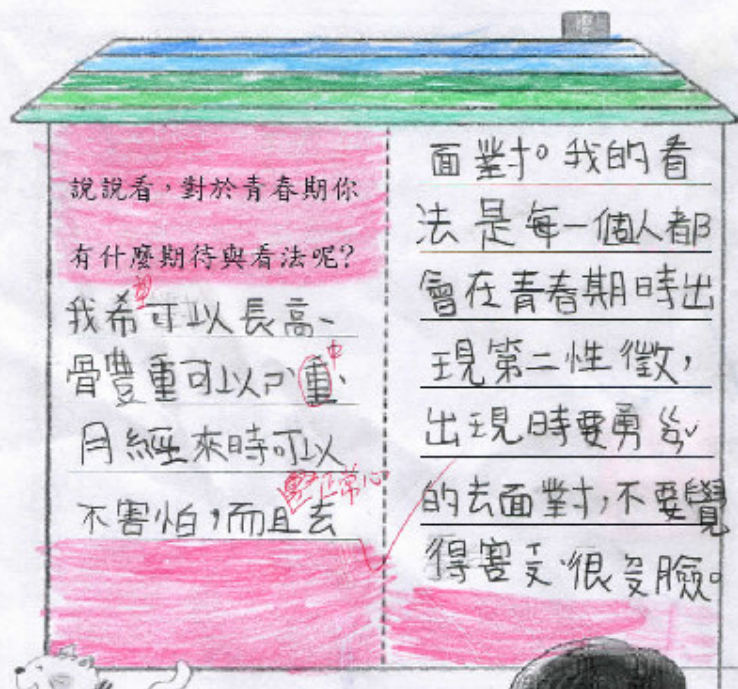 說說看，對於青春期你
有什麼期待與看法呢？
望
我希可以長高、
骨豊重可以ㄕ重、
中
月經來時可以
以正常心
不害怕，而且去
面對。我的看
法是每一個人都
會在青春期時出
現第二性徵，
出現時要勇ㄍㄢˇ
的去面對，不要覺
得害ㄡ很ㄡ臉。